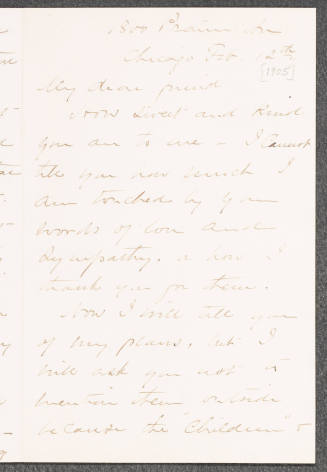 1800 Prairie Av
Chicago Feb. 12th
[1905]
My dear friend
How sweet and kind
you are to me - I cannot
tell you how much I
am touched by your
words of love and
sympathy. & how I
thank you for them.
Now I will tell you
of my plans, but I
will ask you not to
mention them outside
because the "Children"